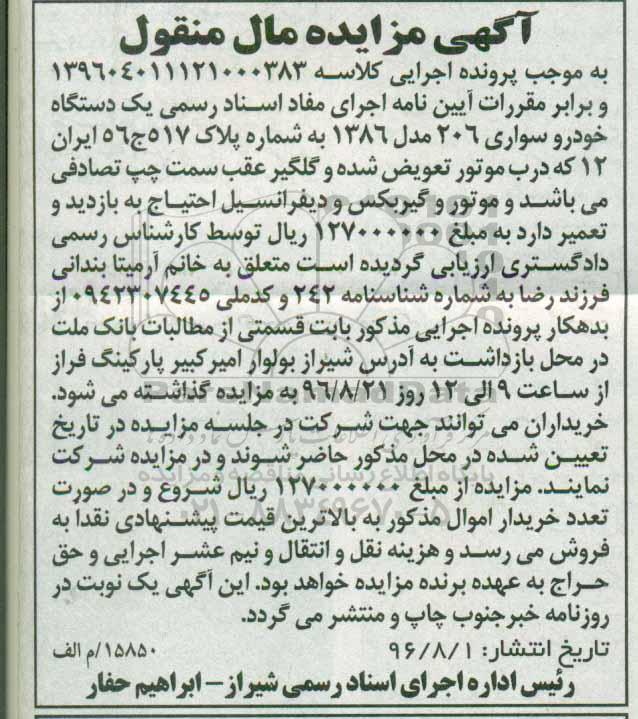 آگهی مزایده مال منقول
به موجب پرونده اجرایی کلاسه ۱۳۹۶۰۴۰۱۱۱۲۱۰۰۰۳۸۳
و برابر مقررات آیین نامه اجرای مفاد اسناد رسمی یک دستگاه
خودرو سواری ۲۰۶ مدل ۱۳۸۶ به شماره پلاک ۵۱۷ج۵۶ ایران
۱۲ که درب موتور تعویض شده و گلگیر عقب سمت چپ تصادفی
می باشد و موتور و گیربکس و دیفرانسیل احتیاج به بازدید و
تعمیر دارد به مبلغ ۱۲۷۰۰۰۰۰۰ ریال توسط کارشناس رسمی
دادگستری ارزیابی گردیده است متعلق به خانم آرمیتا بندانی
فرزند رضا به شماره شناسنامه ۲۴۲ و کدملی ۰۹۴۲۳۰۷۴۴۵ از
بدهکار پرونده اجرایی مذکور بابت قسمتی از مطالبات بانک ملت
در محل بازداشت به آدرس شیراز بولوار امیرکبیر پارکینگ فراز
از ساعت ۹ الی ۱۲ روز ۹۶/۸/۲۱ به مزایده گذاشته می شود.
خریداران می توانند جهت شرکت در جلسه مزایده در تاریخ
تعیین شده در محل مذکور حاضر شوند و در مزایده شرکت
نمایند. مزایده از مبلغ ۱۲۷۰۰۰۰۰۰ ریال شروع و در صورت
تعدد خریدار اموال مذکور به بالاترین قیمت پیشنهادی نقدا به
فروش می رسد و هزینه نقل و انتقال و نیم عشر اجرایی و حق
حراج به عهده برنده مزایده خواهد بود. این آگهی یک نوبت در
روزنامه خبرجنوب چاپ و منتشر می گردد.
تاریخ انتشار: ۹۶/۸/۱ ۱۵۸۵۰/م الف
رئیس اداره اجرای اسناد رسمی شیراز - ابراهیم حفار